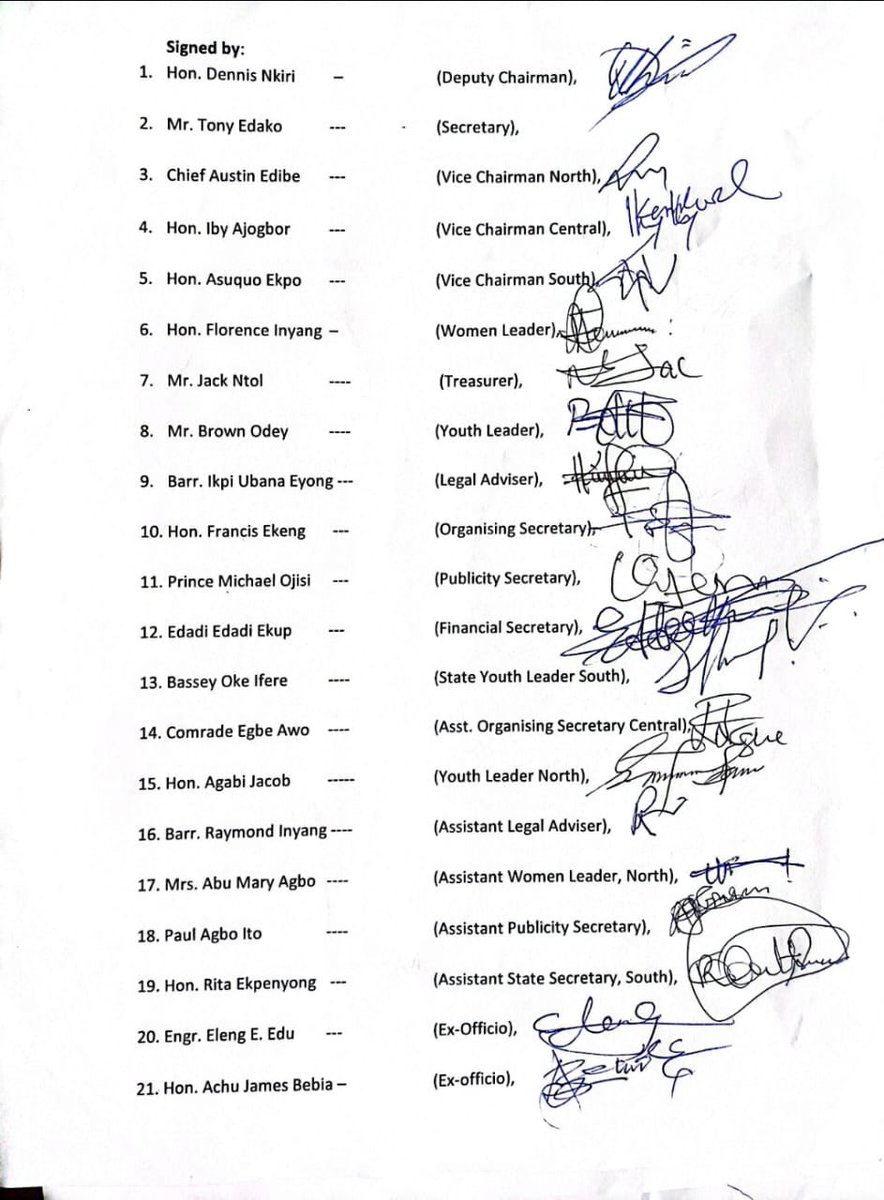 Signed by:
1. Hon. Dennis Nkiri – (Deputy Chairman),
2. Mr. Tony Edako --- (Secretary),
3. Chief Austin Edibe --- (Vice Chairman North),
4. Hon. Iby Ajogbor --- (Vice Chairman Central),
5. Hon. Asuquo Ekpo --- (Vice Chairman South),
6. Hon. Florence Inyang – (Women Leader),
7. Mr. Jack Ntol ---- (Treasurer),
8. Mr. Brown Odey ---- (Youth Leader),
9. Barr. Ikpi Ubana Eyong --- (Legal Adviser),
10. Hon. Francis Ekeng --- (Organising Secretary),
11. Prince Michael Ojisi --- (Publicity Secretary),
12. Edadi Edadi Ekup --- (Financial Secretary),
13. Bassey Oke Ifere ---- (State Youth Leader South),
14. Comrade Egbe Awo ---- (Asst. Organising Secretary Central),
15. Hon. Agabi Jacob ----- (Youth Leader North),
16. Barr. Raymond Inyang ---- (Assistant Legal Adviser),
17. Mrs. Abu Mary Agbo ---- (Assistant Women Leader, North),
18. Paul Agbo Ito ---- (Assistant Publicity Secretary),
19. Hon. Rita Ekpenyong --- (Assistant State Secretary, South),
20. Engr. Eleng E. Edu --- (Ex-Officio),
21. Hon. Achu James Bebia – (Ex-officio),